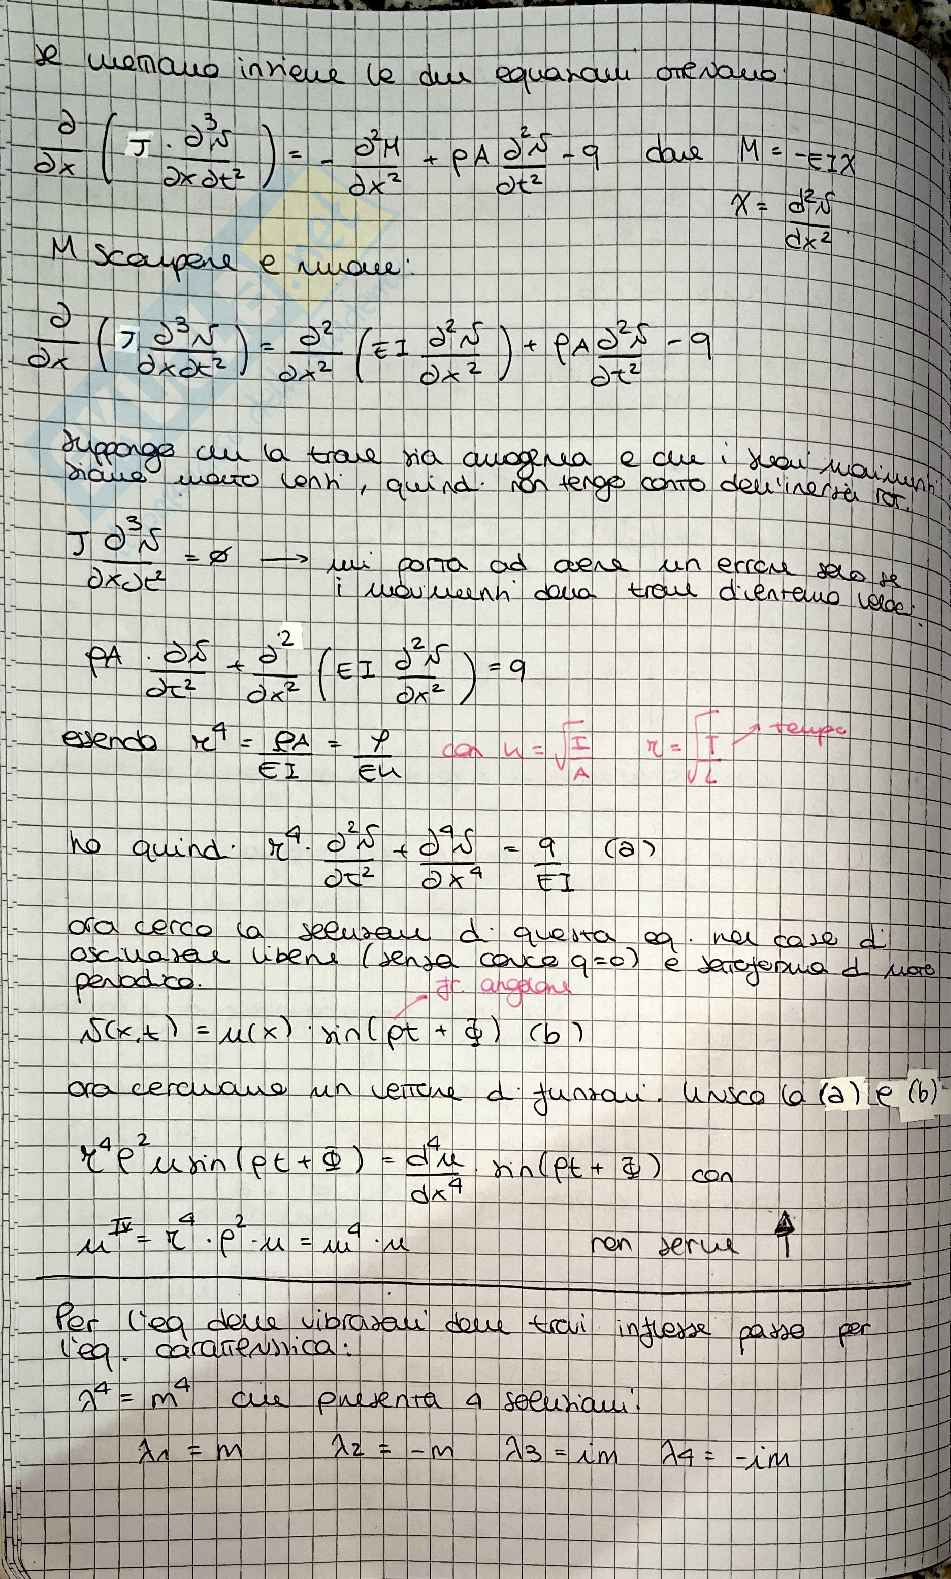 se mettiamo insieme le due equazioni otteniamo:
∂/∂x (J · ∂³v/∂x∂t²) = - ∂²M/∂x² + ρA ∂²v/∂t² - q dove M = -EIχ
χ = d²v/dx²
M scompare e rimane:
∂/∂x (J ∂³v/∂x∂t²) = ∂²/∂x² (EI ∂²v/∂x²) + ρA ∂²v/∂t² - q
suppongo che la trave sia omogenea e che i suoi movimenti
siano molto lenti, quindi non tengo conto dell'inerzia rot.
J ∂³v/∂x∂t² = ø → mi porta ad avere un errore solo se
i movimenti della trave diventano veloci.
ρA · ∂v/∂t² + ∂²/∂x² (EI ∂²v/∂x²) = q
essendo r⁴ = ρA/EI = ρ/Eu con u = √I/A r = √T/L → tempo
ho quindi r⁴ · ∂²v/∂t² + ∂⁴v/∂x⁴ = q/EI (a)
ora cerco la soluzione di questa eq. nel caso di
oscillazioni libere (senza carico q=0) e sottoforma di moto
periodico.
fr. angolare
v(x,t) = u(x) · sin(pt + Φ) (b)
ora cerchiamo un vettore di funzioni. Unisco la (a) e (b)
r⁴p² u sin(pt + Φ) = d⁴u/dx⁴ · sin(pt + Φ) con
u^IV = r⁴ · p² · u = m⁴ · u non serve ↑
Per l'eq delle vibrazioni delle travi inflesse passo per
l'eq. caratteristica:
λ⁴ = m⁴ che presenta 4 soluzioni:
λ1 = m λ2 = -m λ3 = im λ4 = -im